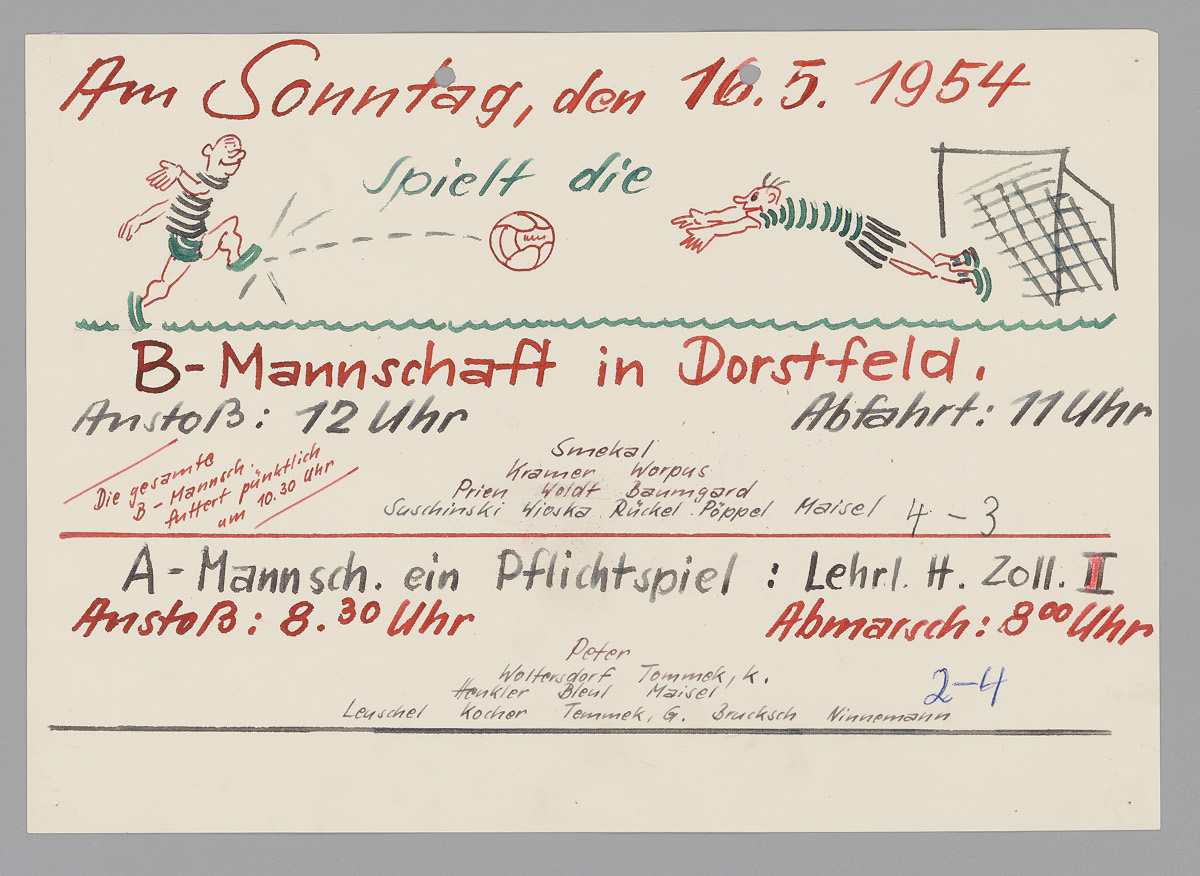 Am Sonntag, den 16. 5. 1954
spielt die
B-Mannschaft in Dorstfeld.
Anstoß: 12 Uhr Abfahrt: 11 Uhr
Die gesamte
B-Mannsch.
futtert pünktlich
um 10.30 Uhr
Smekal
Kramer Worpus
Prien Woldt Baumgard
Suschinski Wioska Rückel Pöppel Maisel 4-3
A-Mannsch. ein Pflichtspiel : Lehrl. H. Zoll. II
Anstoß: 8.30 Uhr Abmarsch: 8 00 Uhr
Peter
Woltersdorf Tommek, K.
Henkler Bleul Maisel
Leuschel Kocher Temmek, G. Brucksch Ninnemann
2-4